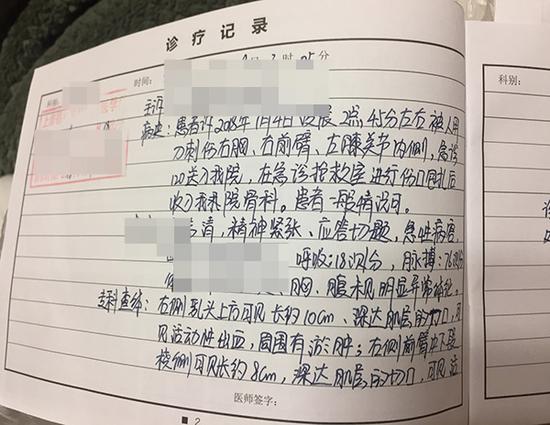 诊疗记录
科别:
时间:
时 25分
科别:
主诉
病史:患者于2018年1月4日凌晨2点45分左右被人用
刀刺伤右胸、右前臂、左膝关节内侧,急诊
120送入我院,在急诊抢救室进行伤口包扎后
收入我院骨科。患者一般情况可。
清,精神紧张、应答切题,急性病容
呼吸:18次/分,脉搏:76次/分
胸、腹未见明显异常
专科查体:右侧乳头上方可见长约10cm、深达肌层的切口,可
见活动性出血,周围有淤肿;右侧前臂中下段
桡侧可见长约8cm,深达肌层的切口,可见活
医师签字:
2